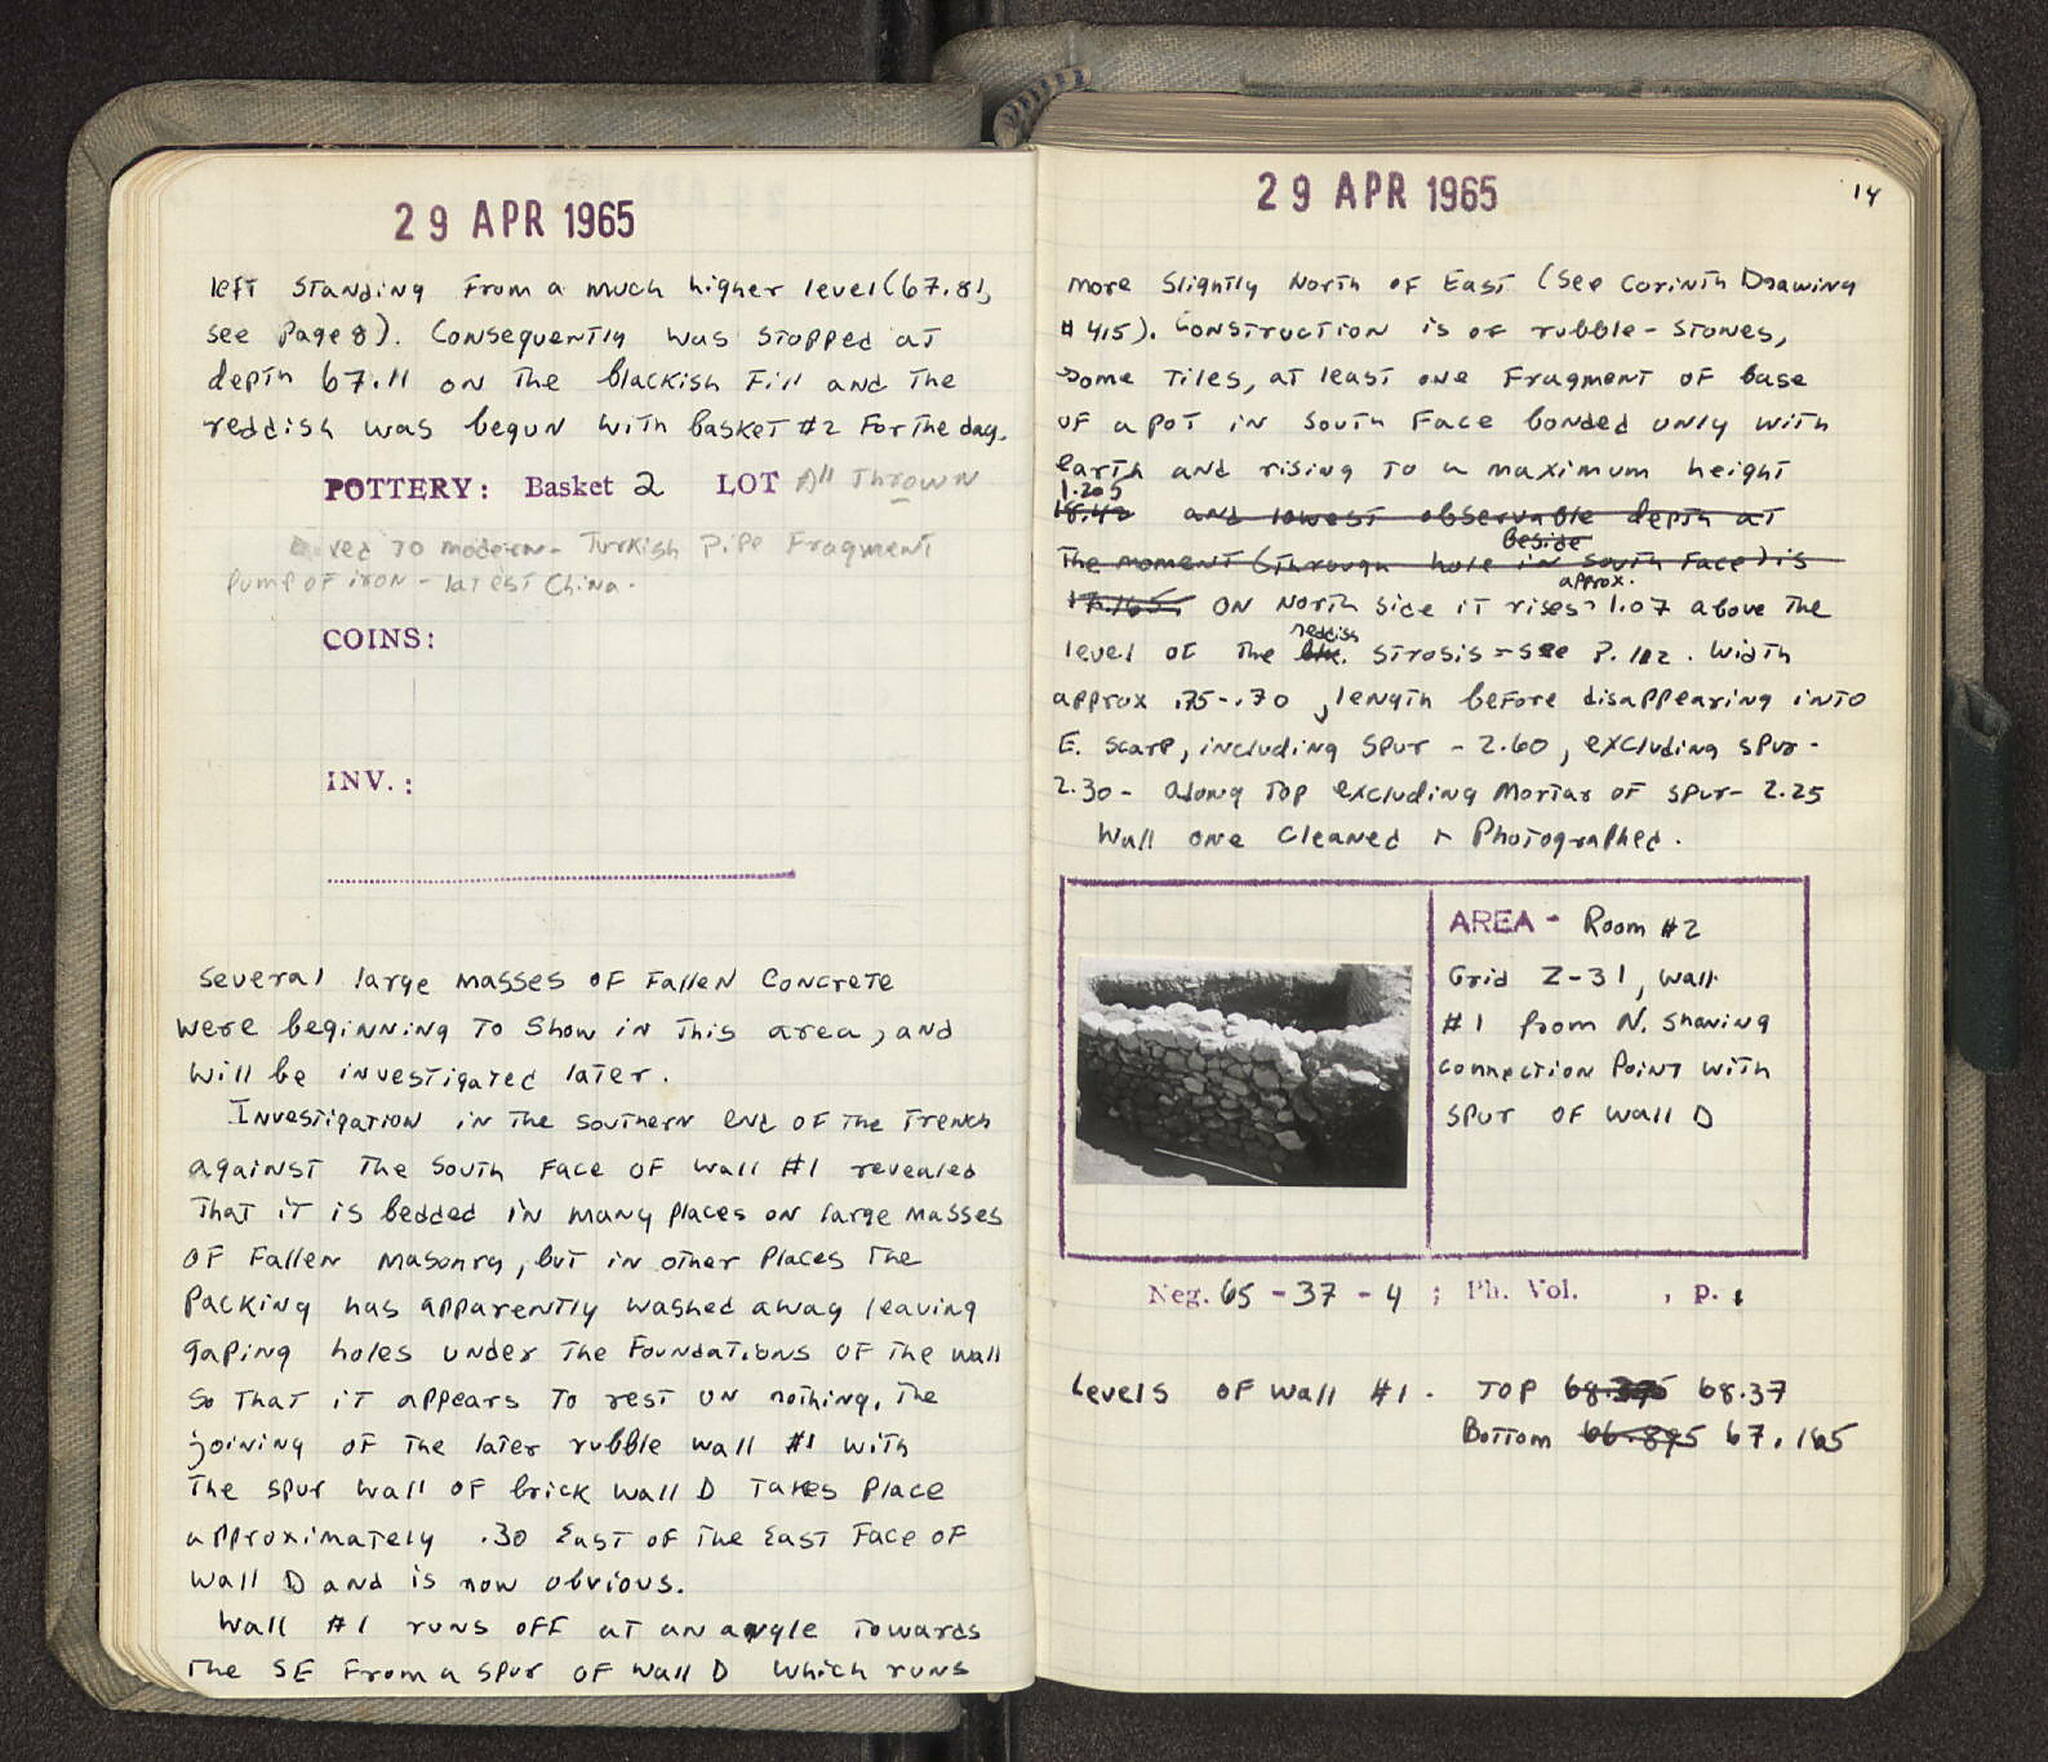 29 APR 1965
left standing from a much higher level (67.81,
see Page 8). Consequently was stopped at
depth 67.11 on the blackish fill and the
reddish was begun with basket #2 for the day.
POTTERY: Basket 2 LOT All Thrown
to modern - Turkish pipe fragment
of iron - latest China.
COINS:
INV.:
Several large masses of fallen concrete
were beginning to show in this area, and
will be investigated later.
Investigation in the southern end of the trench
against the south face of wall #1 revealed
that it is bedded in many places on large masses
of fallen masonry, but in other places the
packing has apparently washed away leaving
gaping holes under the foundations of the wall
so that it appears to rest on nothing. The
joining of the later rubble wall #1 with
the spur wall of brick wall D takes place
approximately .30 East of the East face of
wall D and is now obvious.
Wall #1 runs off at an angle towards
the SE from a spur of wall D which runs
29 APR 1965
14
more slightly North of East (see Corinth Drawing
#415). Construction is of rubble-stones,
some tiles, at least one fragment of base
of a pot in south face bonded only with
earth and rising to a maximum height
1.205
18.42 and lowest observable depth at
beside
the moment (through hole in south face) is
approx.
17.165. On North side it rises 1.07 above the
reddish
level of the blk. strosis = see P. 112. Width
approx .75-.70, length before disappearing into
E. scarp, including spur - 2.60, excluding spur -
2.30 - along top excluding mortar of spur - 2.25
Wall one cleaned + Photographed.
AREA - Room #2
Grid Z-31, wall
#1 from N. showing
connection point with
spur of wall D
Neg. 65 - 37 - 4 ; Ph. Vol. , p.
Levels of wall #1. Top 68.37
Bottom 66.895 67.165